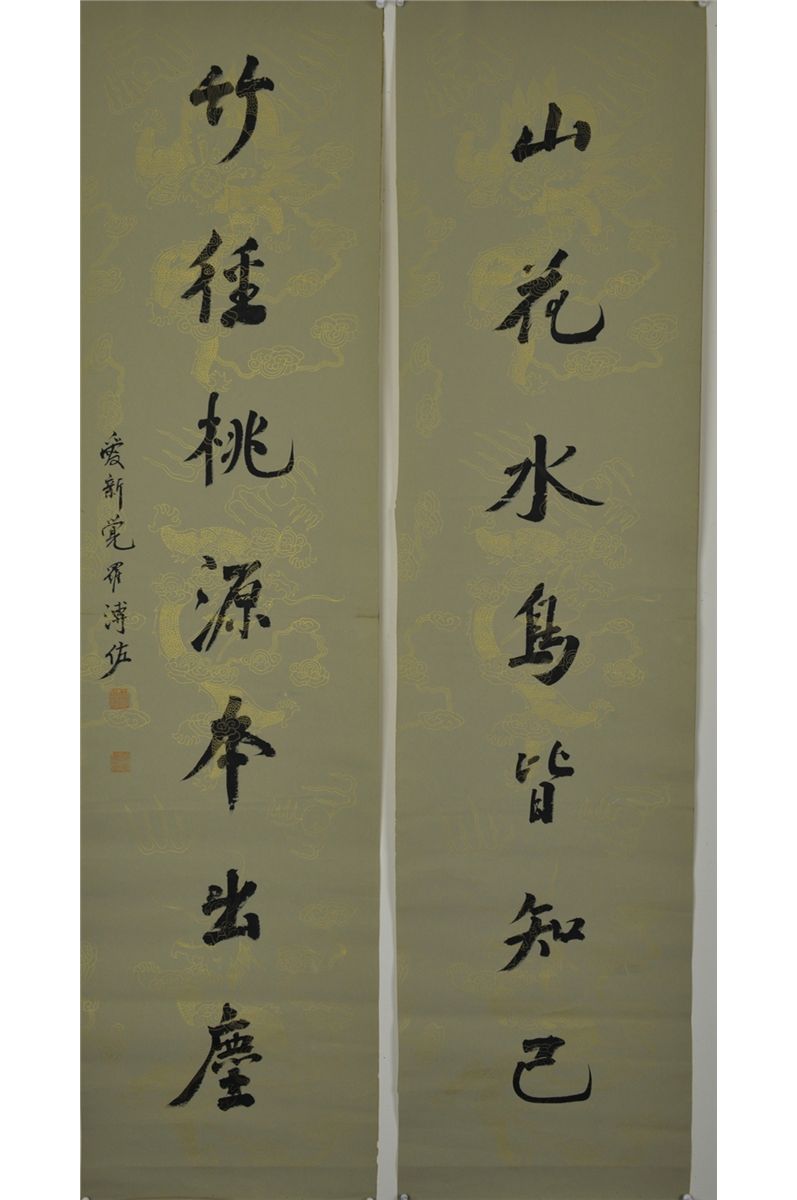 山花水鳥皆知己
竹徑桃源本出塵
愛新覺羅溥佐